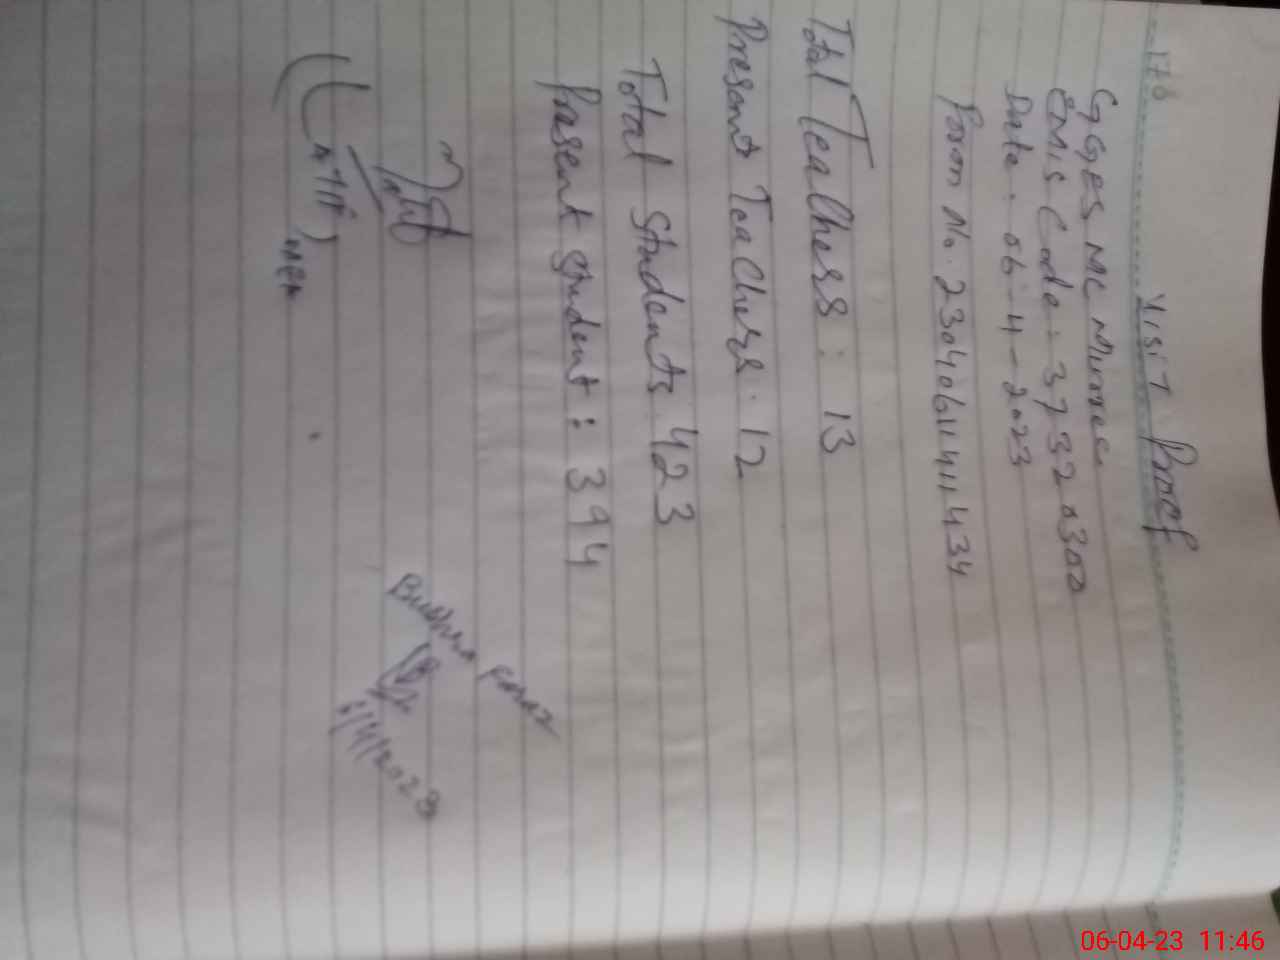 176
Visit Proof
GGES MC Murree
EMIS Code: 37320300
Date: 06-4-2023
Poson No. 23040611411434
Total Teachers: 13
Present Teachers: 12
Total Students: 423
Present student: 394
Bushra
6/4/2023
06-04-23 11:46